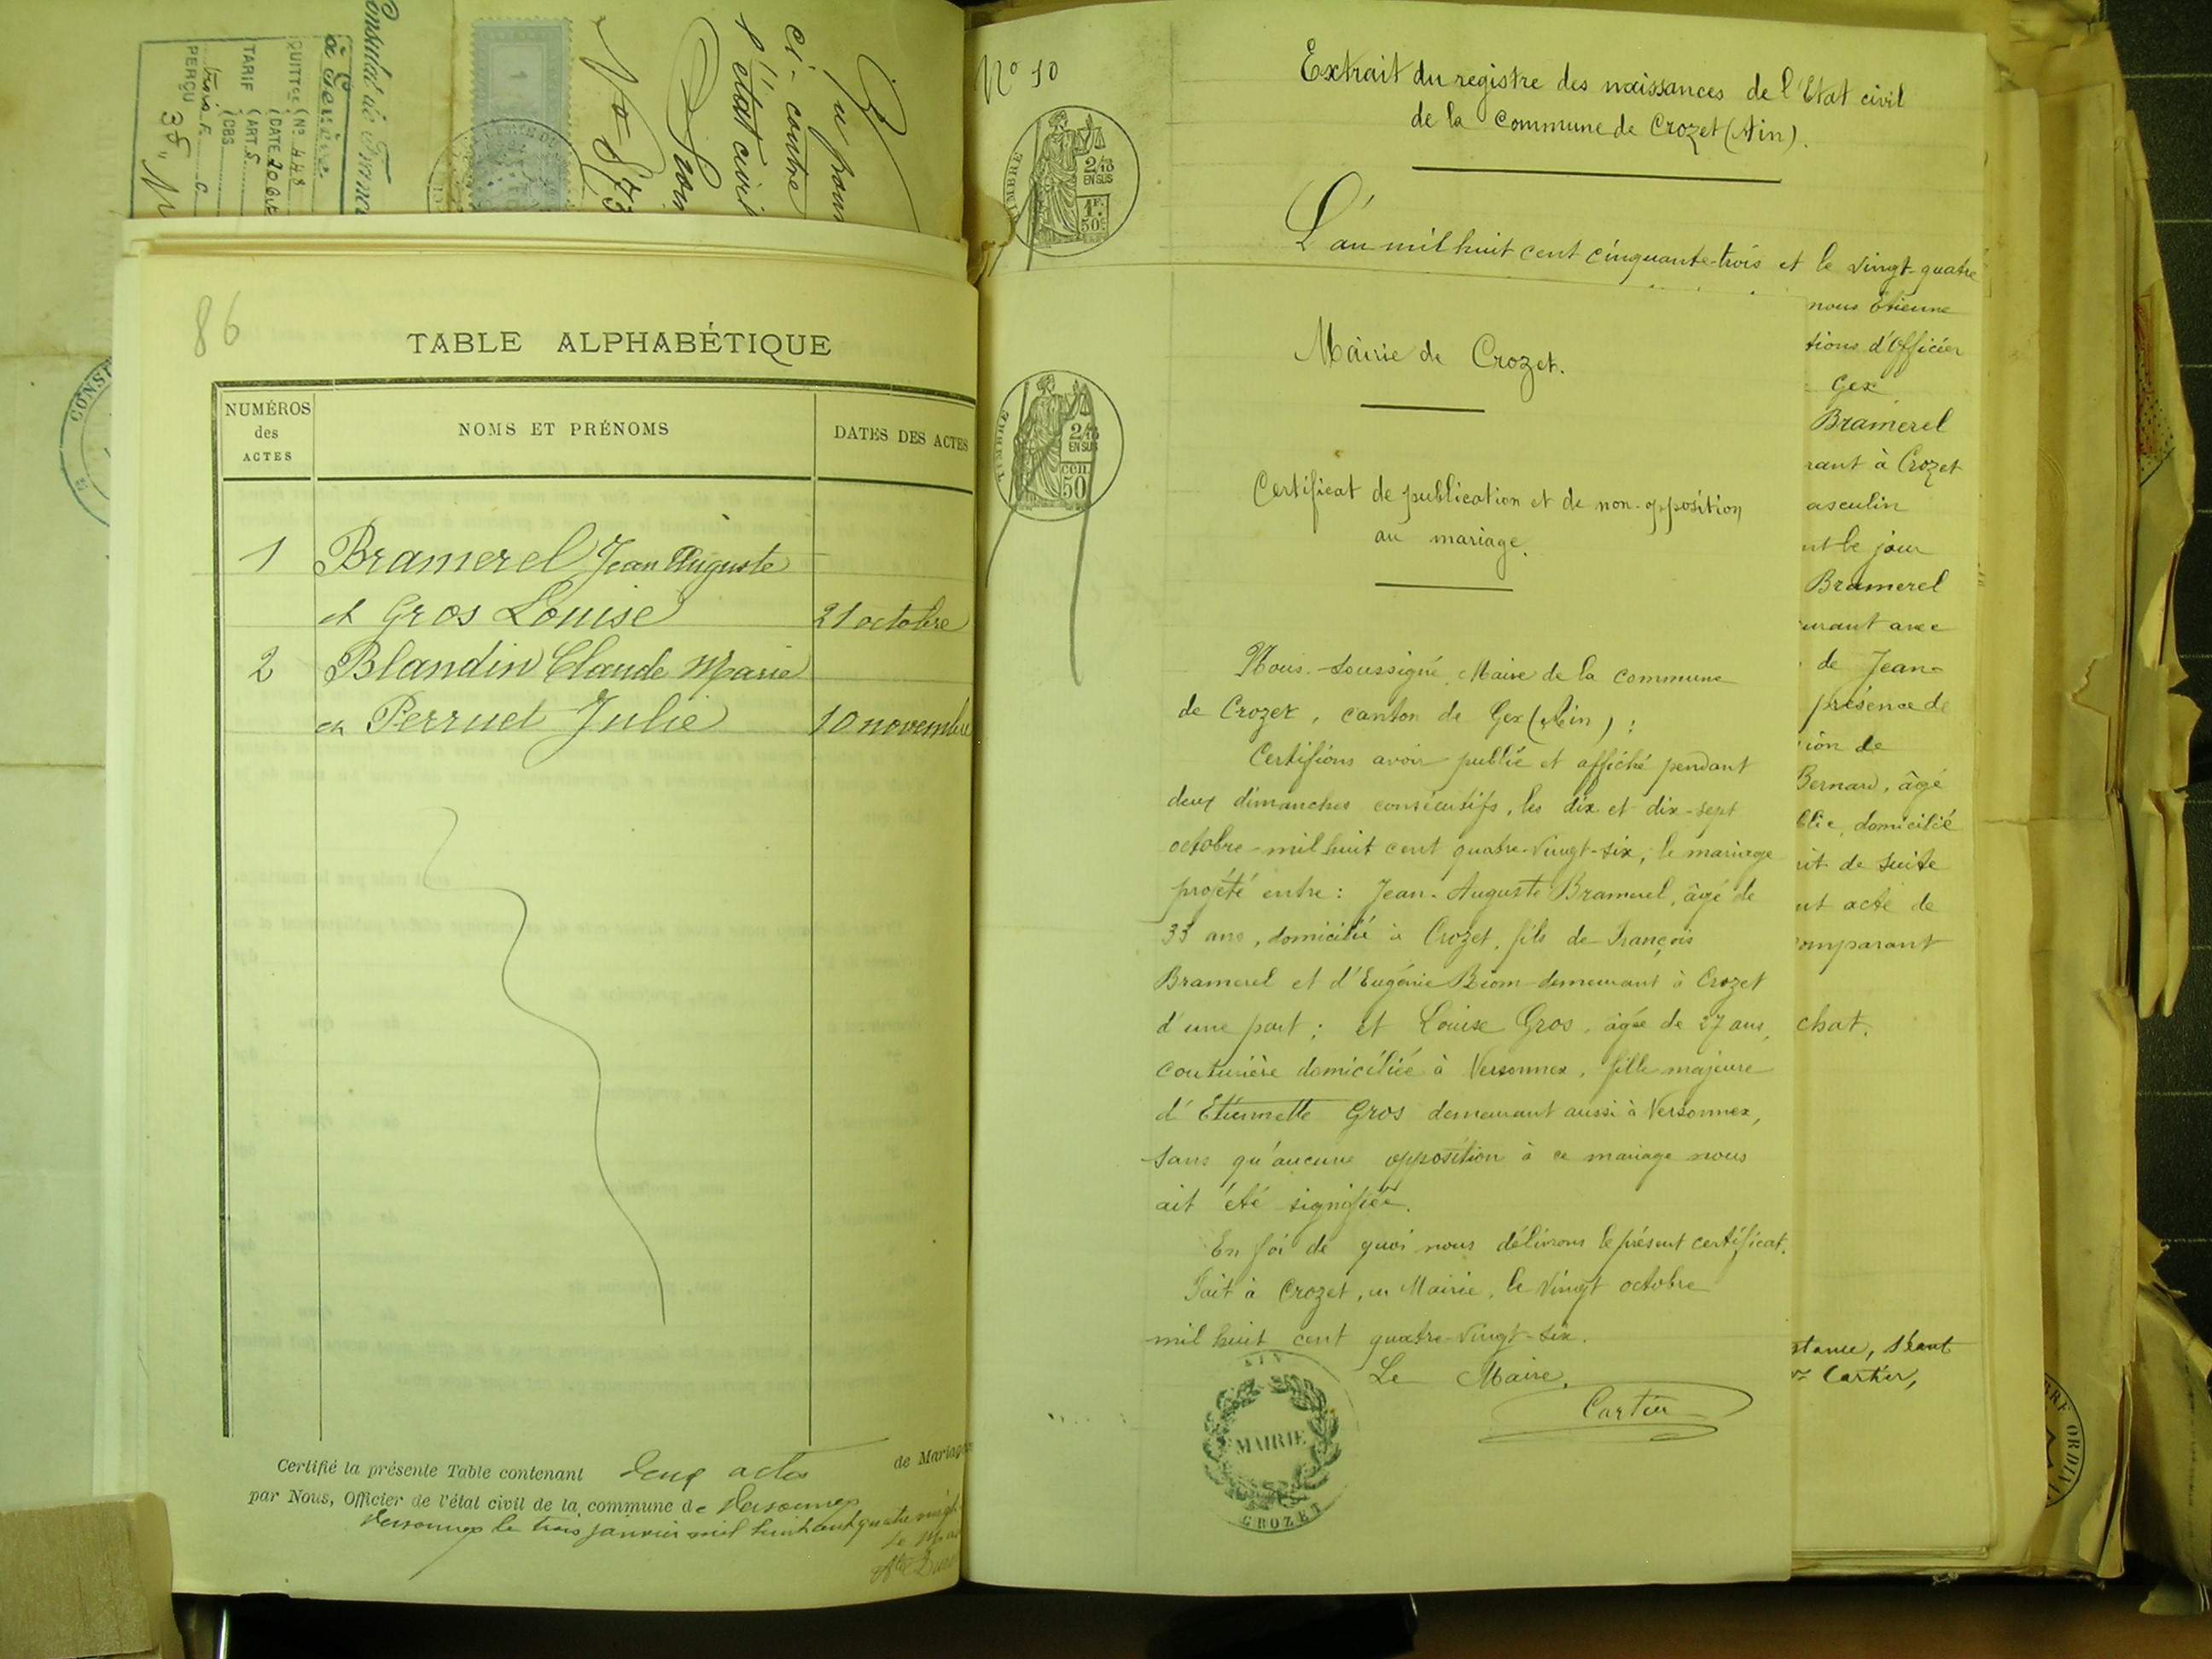 Consulat de France
à Genève
QUITTCE (No 448
(DATE 20
TARIF (ART 5
(CBS
trois F. c.
PERÇU 3f
Vu pour
ci-contre
l'état civil
CONS
86
TABLE ALPHABÉTIQUE
NUMÉROS des ACTES
NOMS ET PRÉNOMS
DATES DES ACTES
1 Bramerel Jean Auguste
et Gros Louise 21 octobre
2 Blandin Claude Marie
et Perruet Julie 10 novembre
Certifié la présente Table contenant deux actes de Mariages
par Nous, Officier de l'état civil de la commune de Versonnex
Versonnex le trois janvier mil huit cent quatre vingt
No 10
Extrait du registre des naissances de l'Etat civil
de la Commune de Crozet (Ain).
TIMBRE
2/10
EN SUS
1F.
50c
L'an mil huit cent cinquante-trois et le vingt-quatre
Mairie de Crozet.
TIMBRE
2/10
EN SUS
cen
50
Certificat de publication et de non-opposition
au mariage.
Nous soussigné, Maire de la commune
de Crozet, canton de Gex (Ain) :
Certifions avoir publié et affiché pendant
deux dimanches consécutifs, les dix et dix-sept
octobre mil huit cent quatre-vingt-six, le mariage
projeté entre : Jean-Auguste Bramerel, âgé de
33 ans, domicilié à Crozet, fils de François
Bramerel et d'Eugénie demeurant à Crozet
d'une part ; et Louise Gros, âgée de 27 ans,
couturière domiciliée à Versonnex, fille majeure
d'Etiennette Gros demeurant aussi à Versonnex,
sans qu'aucune opposition à ce mariage nous
ait été signifiée.
En foi de quoi nous délivrons le présent certificat.
Fait à Crozet, en Mairie, le vingt octobre
mil huit cent quatre-vingt-six.
Le Maire,
Cartier
AIN
MAIRIE
CROZET
nous Etienne
tions d'Officier
Gex
Bramerel
rant à Crozet
asculin
nt le jour
Bramerel
eurant avec
de Jean-
présence de
ion de
Bernard, âgé
blic, domicilié
rit de suite
nt acte de
omparant
chat.
stance, séant
Cartier,
RE ORDIN